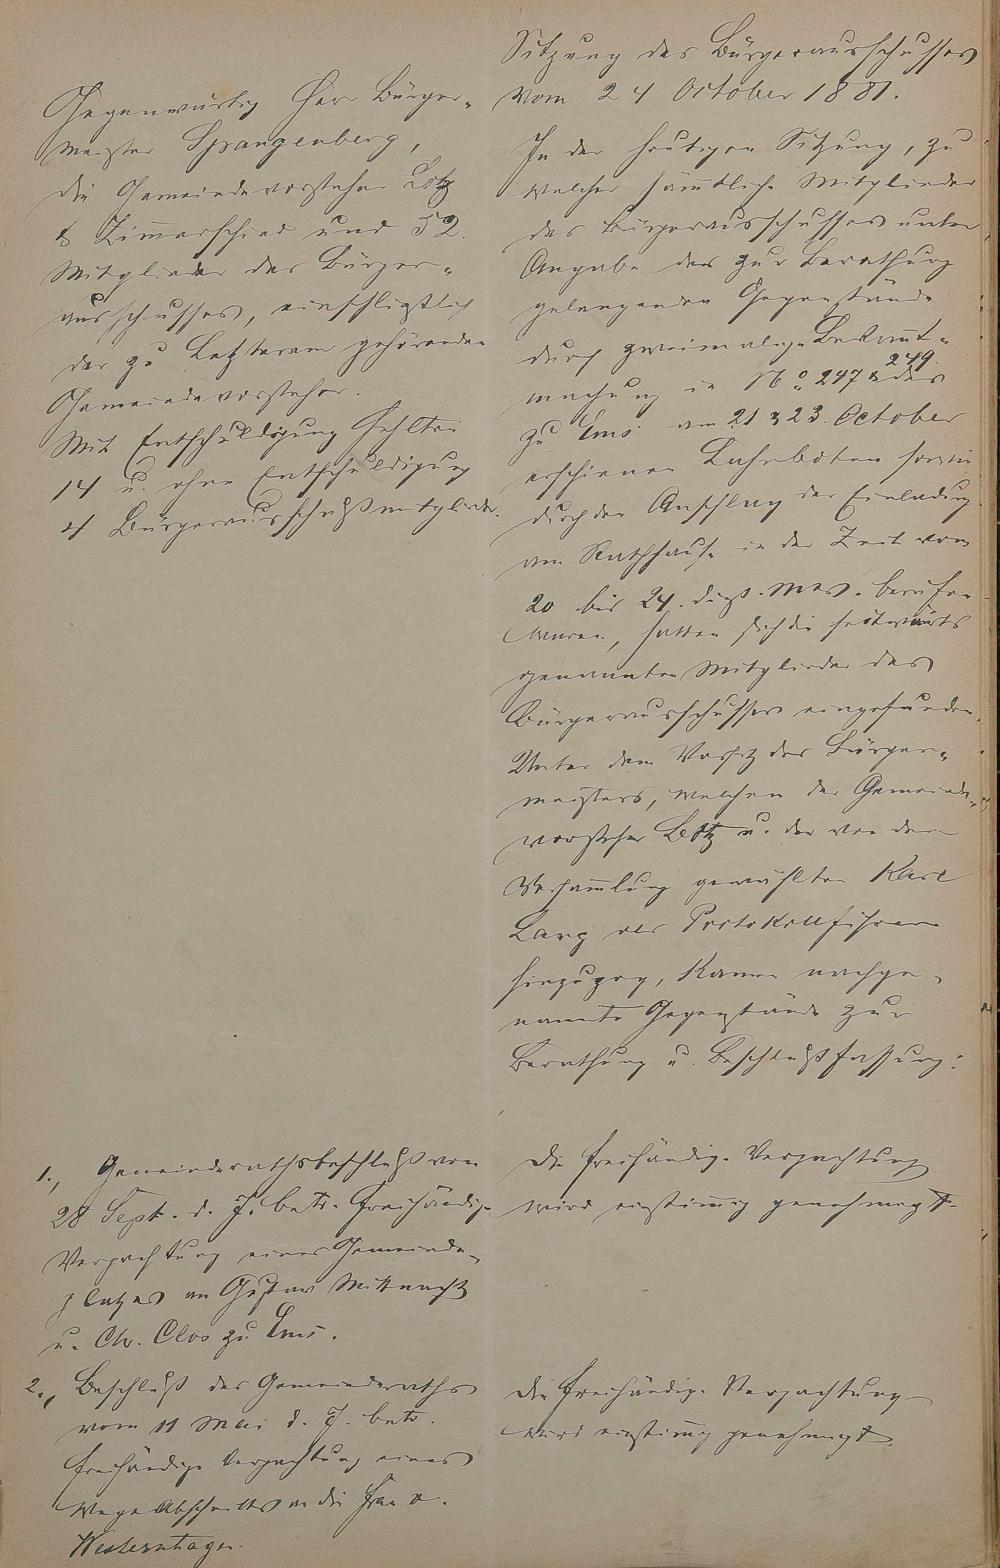 Sitzung des Bürgerausschusses
vom 24 October 1881.
Gegenwärtig Herr Bürger-
meister Spangenberg,
die Gemeindevorsteher Lotz
& Zimerschied und 52
Mitglieder des Bürger-
ausschusses, einschließlich
der zu Letzterem gehörenden
Gemeindevorsteher.
Mit Entschuldigung fehlten
14 u. ohne Entschuldigung
4 Bürgerausschußmitglieder.
In der heutigen Sitzung, zu
welcher sämtliche Mitglieder
des Bürgerausschusses unter
Angabe der zur Berathung
gelangenden Gegenstände
durch zweimalige Bekant-
machung in No 247 & 249 des
zu Ems am 21 & 23. October
erschienen Lahnboten sowie
durch den Anschlag der Einladung
am Rathhause in der Zeit vom
20 bis 24. dieß. Mts. berufen
waren, hatten sich die seitwärts
genannten Mitglieder des
Bürgerausschusses eingefunden.
Unter dem Vorsitz des Bürger-
meisters, welchen der Gemeinde-
vorsteher Lotz u. der von der
Versamlung gewählte Karl
Lang als Protokollführer
hinzuzog, kamen nachge-
nannte Gegenstände zur
Berathung u. Beschlußfassung:
1., Gemeinderathsbeschluß vom
28 Sept. d. J. betr. freihändige
Verpachtung eines Gemeinde-
platzes an Gustav Mittnacht
u. Chr. Cloos zu Ems.
Die freihändige Verpachtung
wird einstimig genehmigt.
2., Beschluß des Gemeinderaths
vom 11 Mai d. J. betr.
freihändige Verpachtung eines
Wege Abschnitts an die
Die freihändige Verpachtung
wird einstimig genehmigt.